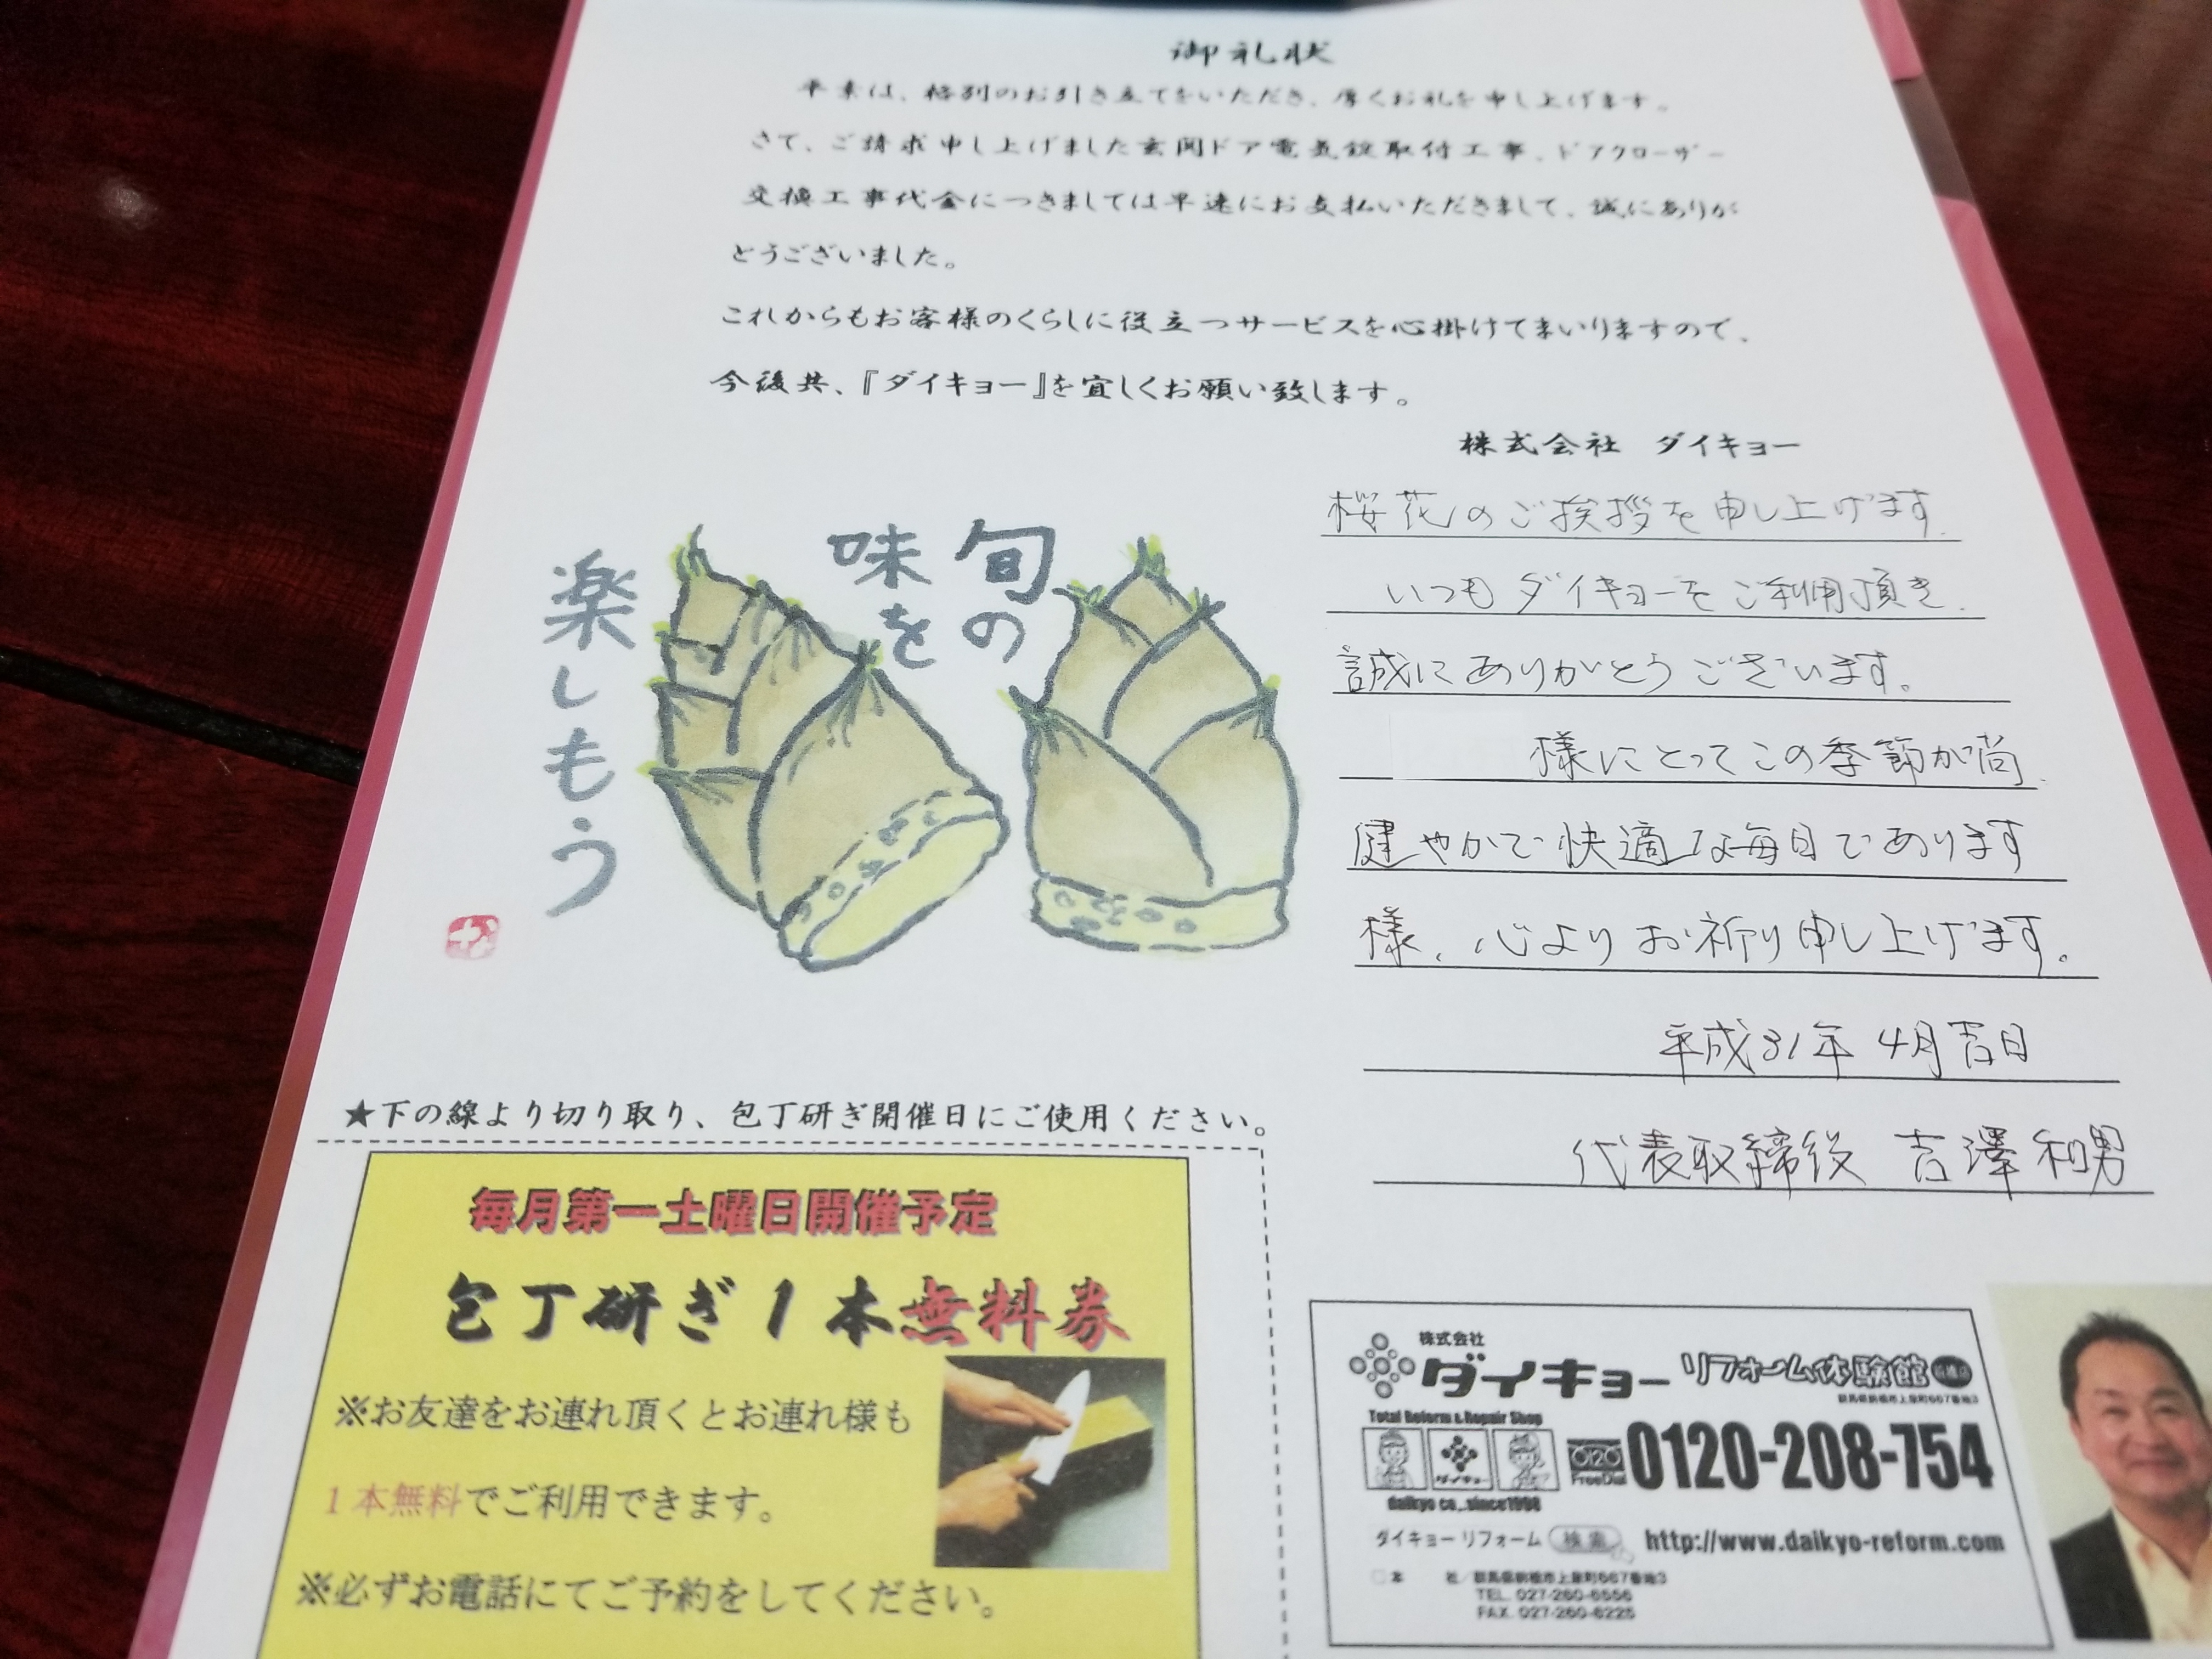 御礼状
平素は、格別のお引き立てをいただき、厚くお礼を申し上げます。
さて、ご請求申し上げました玄関ドア電気錠取付工事、ドアクローザー
交換工事代金につきましては早速にお支払いただきまして、誠にありが
とうございました。
これからもお客様のくらしに役立つサービスを心掛けてまいりますので、
今後共、『ダイキョー』を宜しくお願い致します。
株式会社 ダイキョー
旬の
味を
楽しもう
桜花のご挨拶を申し上げます。
いつもダイキョーをご利用頂き、
誠にありがとうございます。
様にとってこの季節が尚、
健やかで快適な毎日であります
様、心よりお祈り申し上げます。
平成31年 4月吉日
代表取締役 吉澤和男
★下の線より切り取り、包丁研ぎ開催日にご使用ください。
毎月第一土曜日開催予定
包丁研ぎ1本無料券
※お友達をお連れ頂くとお連れ様も
1本無料でご利用できます。
※必ずお電話にてご予約をしてください。
株式会社
ダイキョー リフォーム体験館
群馬県前橋市上泉町667番地3
Total Reform & Repair Shop
ダイキョー
daikyo co,.since1998
0120
FreeDial
0120-208-754
ダイキョー リフォーム 検索 http://www.daikyo-reform.com
本 社/群馬県前橋市上泉町667番地3
TEL. 027-260-6556
FAX. 027-260-6225